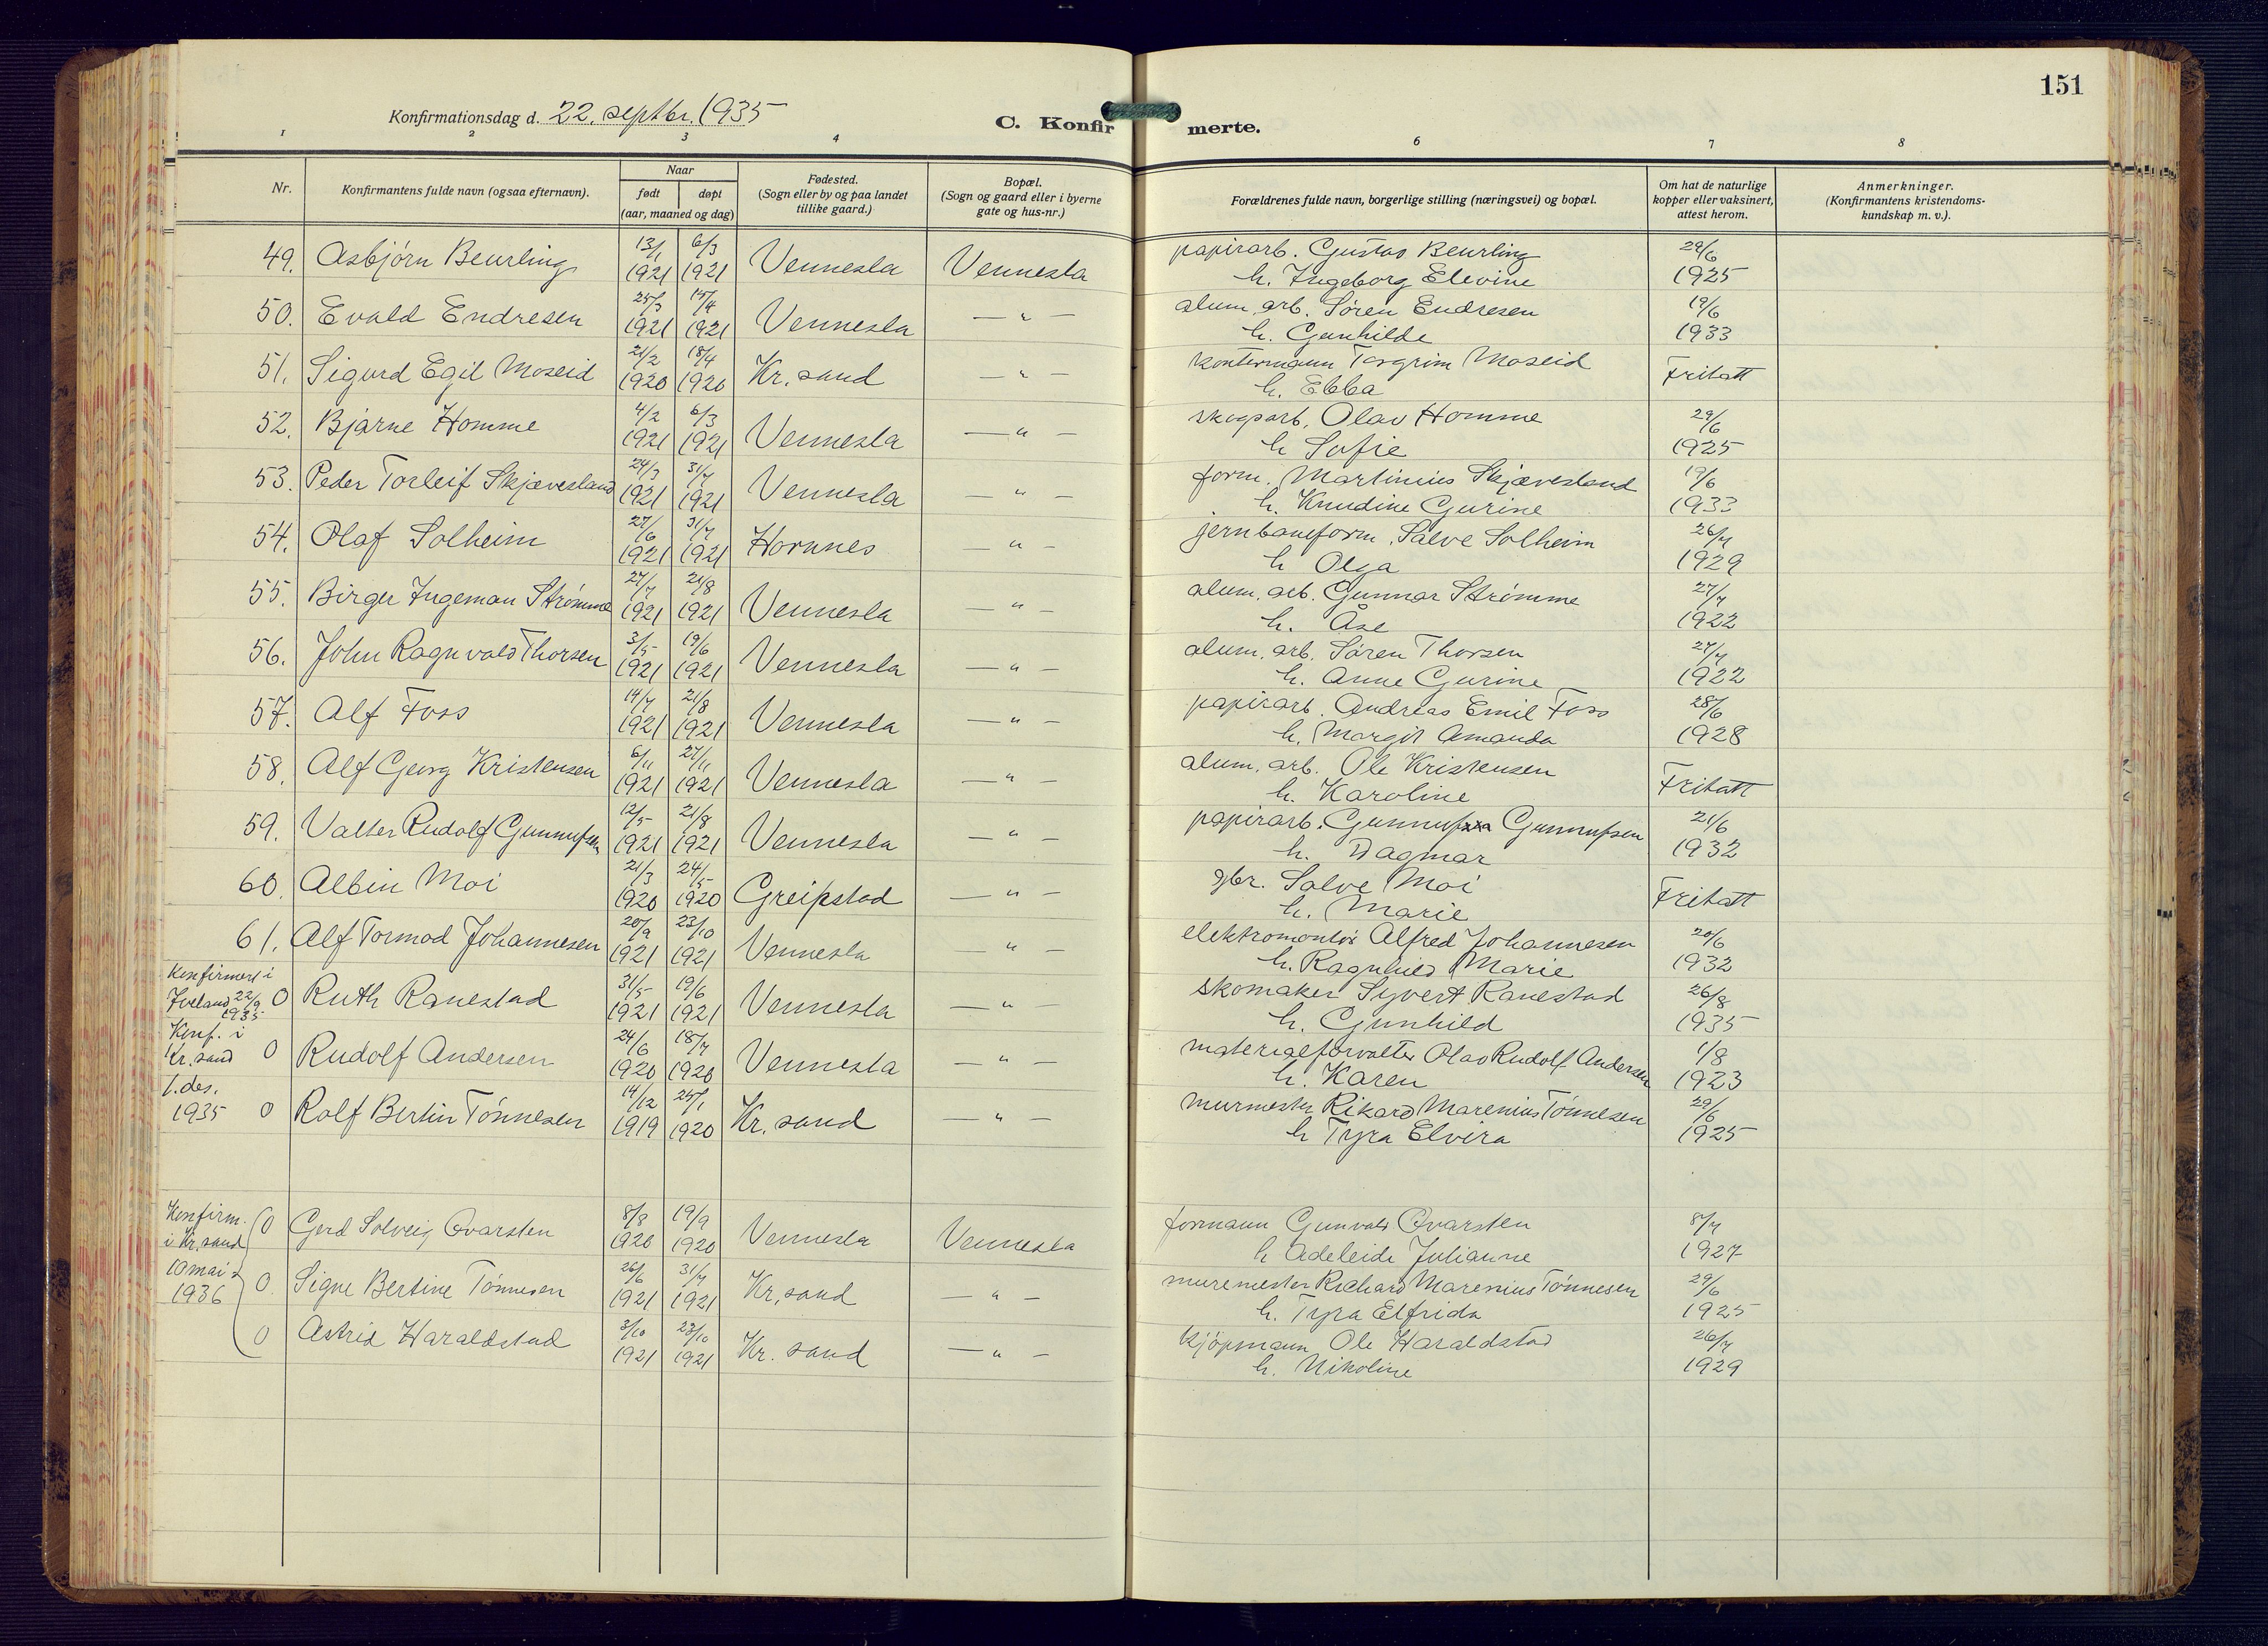 151
Konfirmationsdag d. 22. septbr. 1935
C. Konfirmerte.
1 2 3 4 6 7 8
Nr.
Konfirmantens fulde navn (ogsaa efternavn).
Naar
født døpt
(aar, maaned og dag)
Fødested.
(Sogn eller by og paa landet
tillike gaard.)
Bopæl.
(Sogn og gaard eller i byerne
gate og hus-nr.)
Forældrenes fulde navn, borgerlige stilling (næringsvei) og bopæl.
Om hat de naturlige
kopper eller vaksinert,
attest herom.
Anmerkninger.
(Konfirmantens kristendoms-
kundskap m. v.).
49. Asbjörn Beurling 13/1 1921 6/3 1921 Vennesla Vennesla papirarb. Gustav Beurling 29/6
h. Ingeborg Elevine 1925
50. Evald Endresen 25/3 1921 17/4 1921 Vennesla — " — alum. arb. Søren Endresen 19/6
h. Gunhilde 1933
51. Sigurd Egil Moseid 21/2 1920 18/4 1920 Kr. sand — " — kontormann Torgrim Moseid Fritatt
h. Ebba
52. Bjarne Homme 4/2 1921 6/3 1921 Vennesla — " — skogsarb. Olav Homme 29/6
h Sofie 1925
53. Peder Torleif Skjævesland 24/3 1921 31/7 1921 Vennesla — " — form. Martinius Skjævesland 19/6
h. Knudine Gurine 1933
54. Olaf Solheim 27/6 1921 31/7 1921 Hornnes — " — jernbaneform. Salve Solheim 26/7
h Olga 1929
55. Birger Ingeman Strømme 27/7 1921 21/8 1921 Vennesla — " — alum. arb. Gunnar Strømme 27/7
h. Åse 1922
56. John Ragnvald Thorsen 3/5 1921 19/6 1921 Vennesla — " — alum. arb. Søren Thorsen 27/7
h. Anne Gurine 1922
57. Alf Foss 14/7 1921 21/8 1921 Vennesla — " — papirarb. Andreas Emil Foss 28/6
h. Margit Amanda 1928
58. Alf Georg Kristensen 6/11 1921 27/11 1921 Vennesla — " — alum. arb. Ole Kristensen Fritatt
h. Karoline
59. Valter Rudolf Gunnufsen 12/5 1921 21/8 1921 Vennesla — " — papirarb. Gunnuf Gunnufsen 21/6
h. Dagmar 1932
60. Albin Moi 21/3 1920 24/5 1920 Greipstad — " — gbr. Salve Moi Fritatt
h. Marie
61. Alf Tormod Johannesen 20/9 1921 23/10 1921 Vennesla — " — elektromontör Alfred Johannesen 20/6
h. Ragnhild Marie 1932
Konfirmert i
Iveland 22/9 1935 0 Ruth Ranestad 31/5 1921 19/6 1921 Vennesla — " — skomaker Syvert Ranestad 26/8
h. Gunhild 1935
Konf. i
Kr. sand 0 Rudolf Andersen 24/6 1920 18/7 1920 Vennesla — " — materialforvalter Olav Rudolf Andersen 1/8
h. Karen 1923
1. des.
1935 0 Rolf Bertin Tönnesen 14/12 1919 25/1 1920 Kr. sand — " — murmester Rikard Marenius Tönnesen 29/6
h Tyra Elvira 1925
Konfirm.
i Kr. sand 0 Gerd Solveig Qvarsten 8/8 1920 19/9 1920 Vennesla Vennesla formann Gunvald Qvarsten 8/7
h Adeleide Julianne 1927
10 mai
1936 0 Signe Bertine Tönnesen 26/6 1921 31/7 1921 Kr. sand — " — muremester Richard Marenius Tönnesen 29/6
h. Tyra Elfrida 1925
0 Astrid Haraldstad 3/10 1921 23/10 1921 Kr. sand — " — kjöpmann Ole Haraldstad 26/7
h. Nikoline 1929